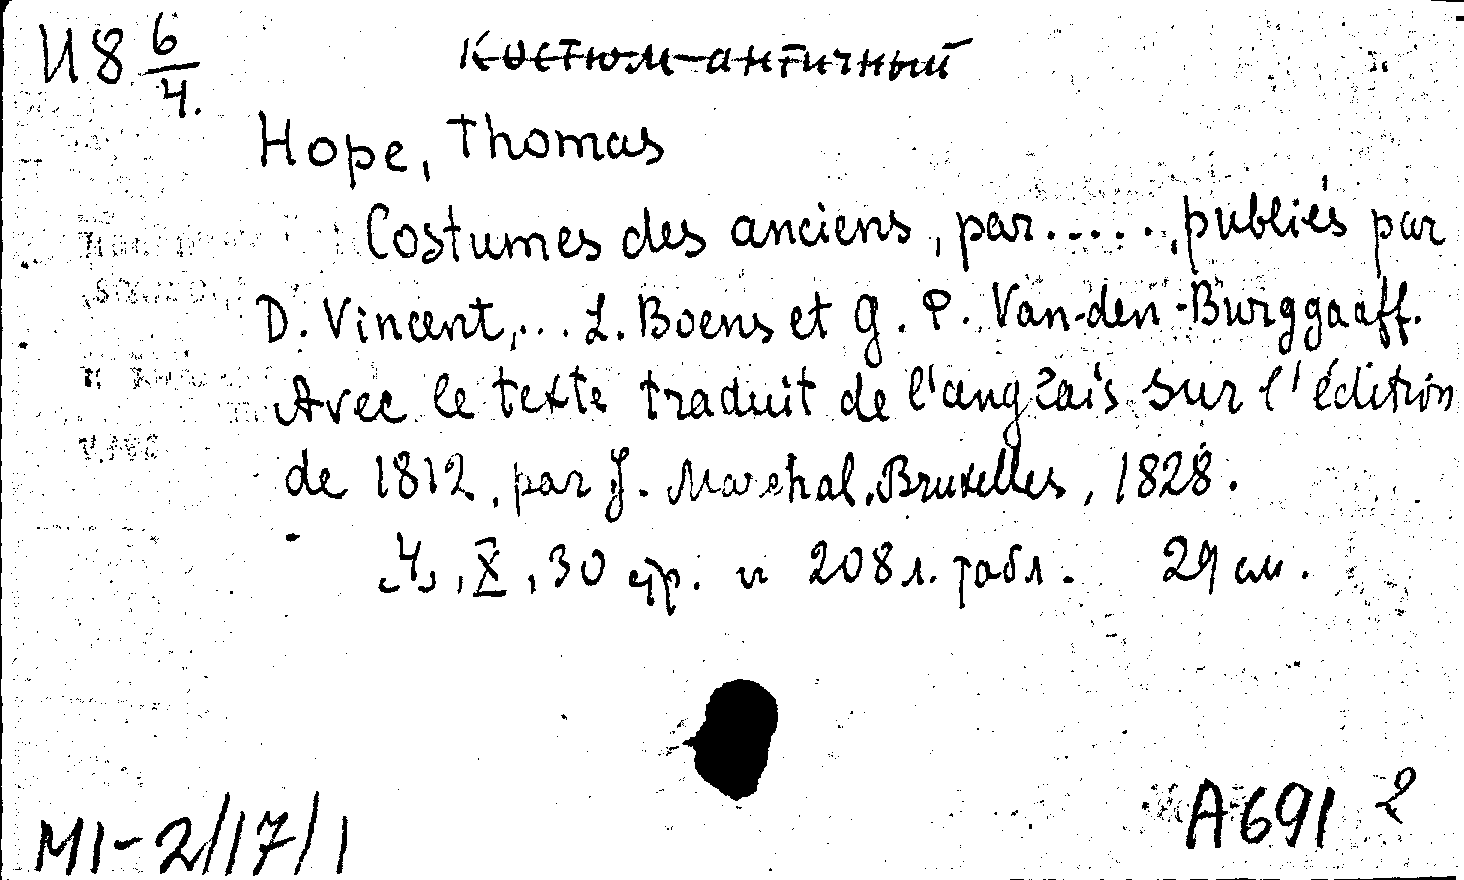 И8 6/4.
Костюм античный
Hope, Thomas
Costumes des anciens, par....., publiés par
D. Vincent,... L. Boens et G. P. Van-den-Burggaaff.
Avec le texte traduit de l'anglais sur l'édition
de 1812, par J. Marchal. Bruxelles, 1828.
4, X, 30 стр. и 208 л. табл. 29 см.
MI-2/17/1
A691 2